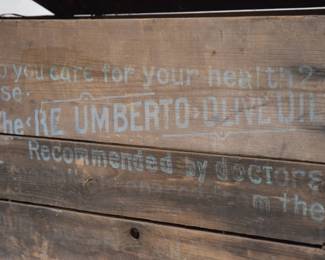 o you care for your health?
se
the RE UMBERTO OLIVE OIL
Recommended by doctors
m the